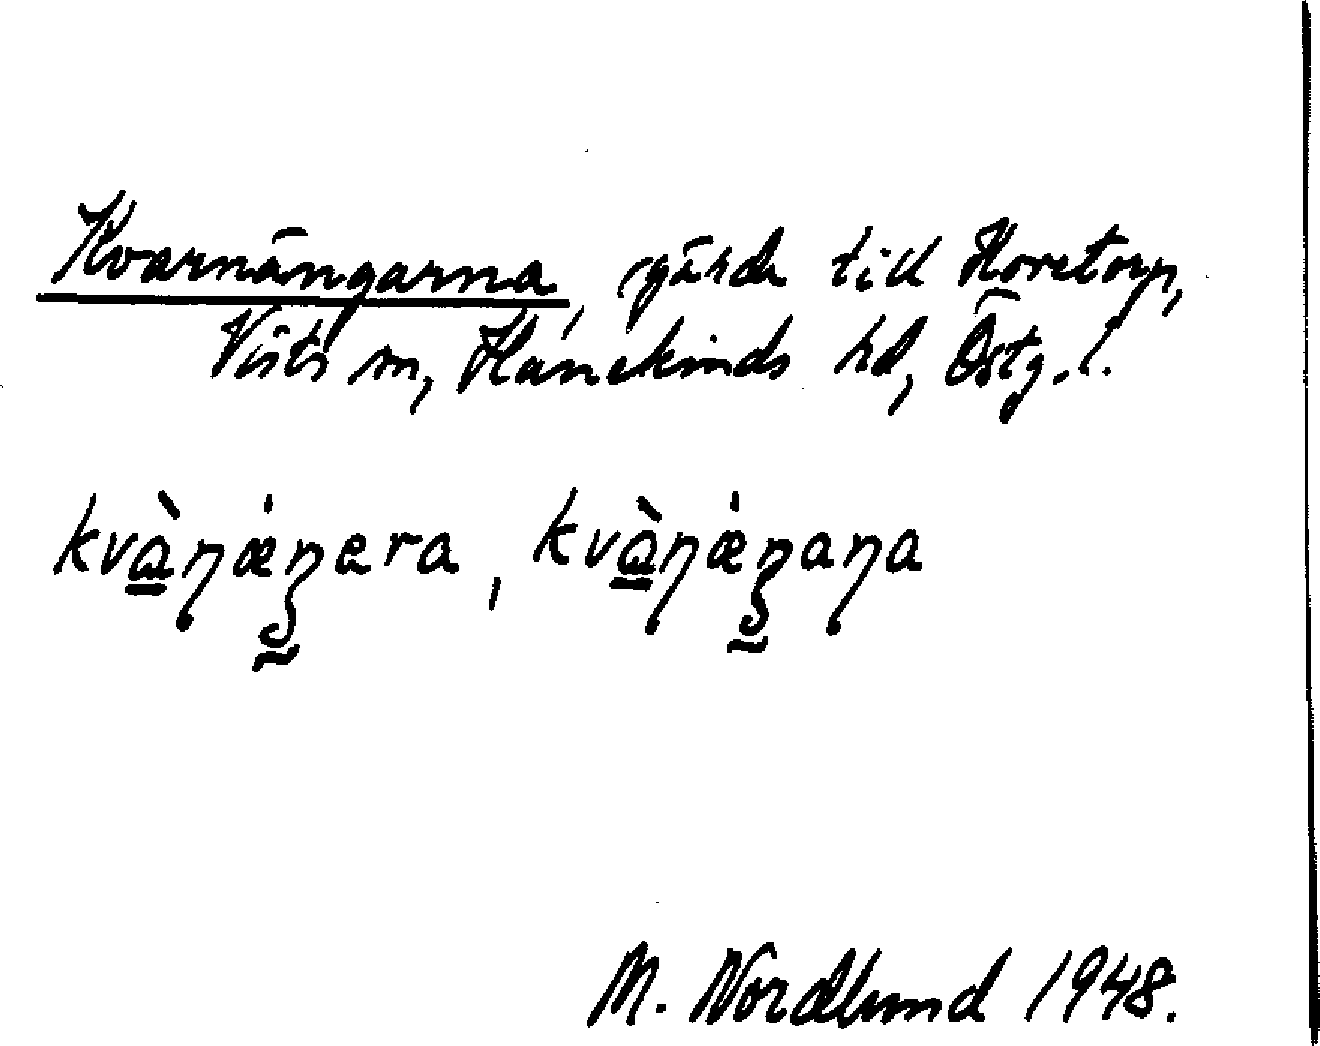 Kvarnängarna, gärde till Horetorp,
Vists sn, Hanekinds hd, Östg. l.
kvàṇǽŋera, kvàṇǽŋaṇa
M. Nordlund 1948.